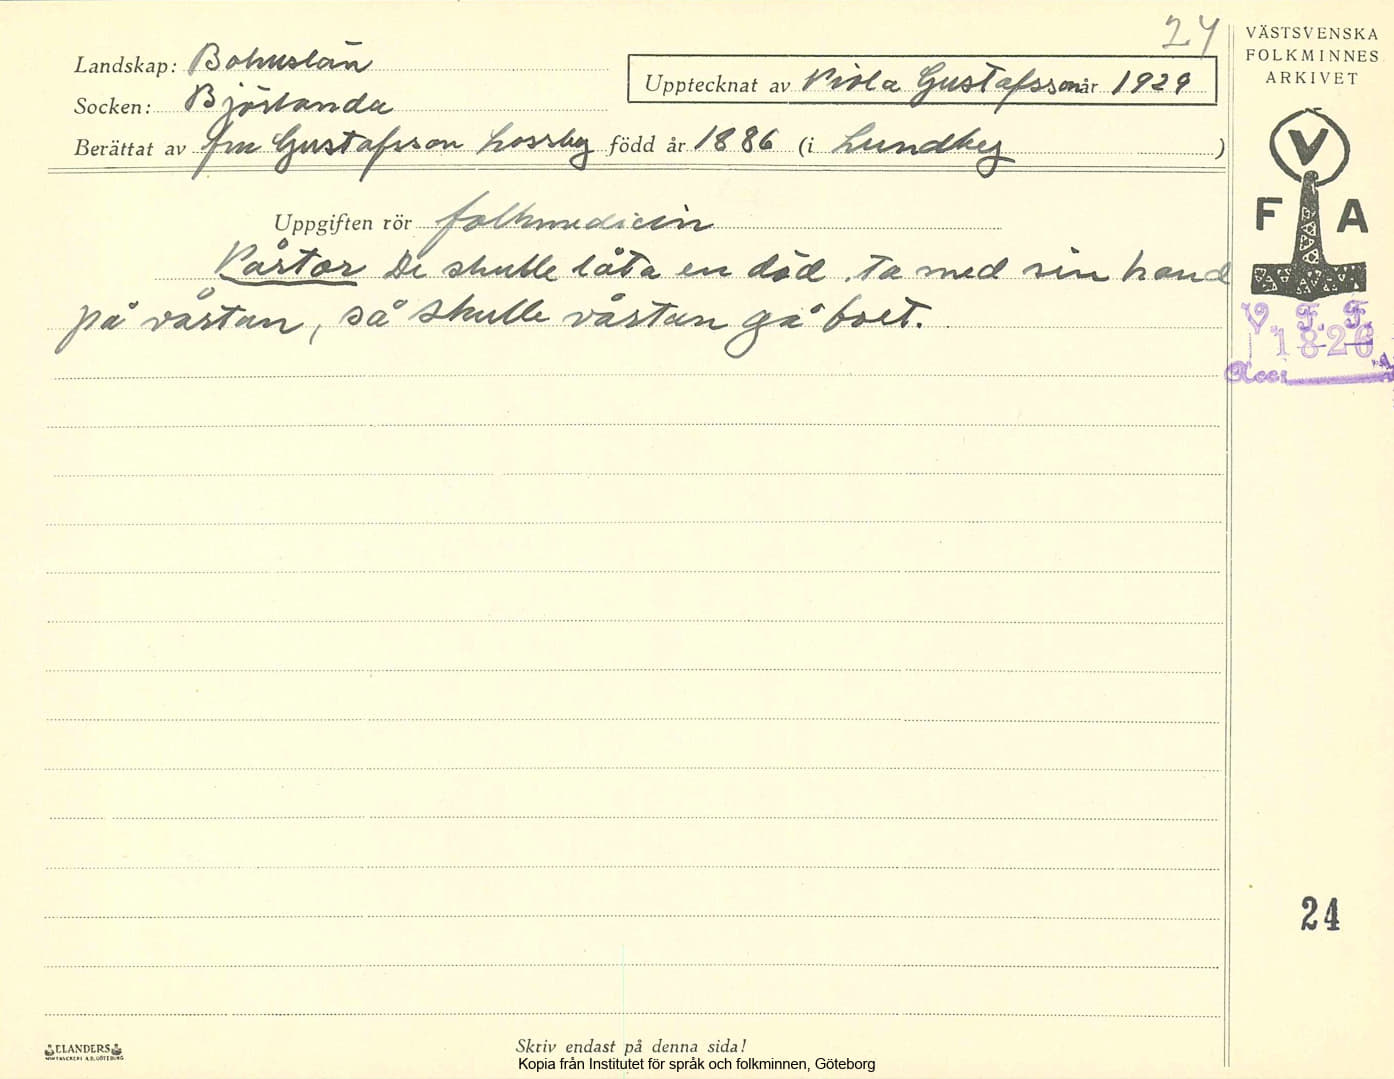 24
VÄSTSVENSKA
FOLKMINNES
ARKIVET
Landskap: Bohuslän
Upptecknat av Viola Gustafsson år 1929
Socken: Björlanda
Berättat av fru Gustafsson Lossby född år 1886 (i Lundby)
V
F A
Uppgiften rör folkmedicin
Vårtor De skulle låta en död ta med sin hand
på vårtan, så skulle vårtan gå bort.
V. F. F.
1826
Acc.
24
ELANDERS
Skriv endast på denna sida!
Kopia från Institutet för språk och folkminnen, Göteborg